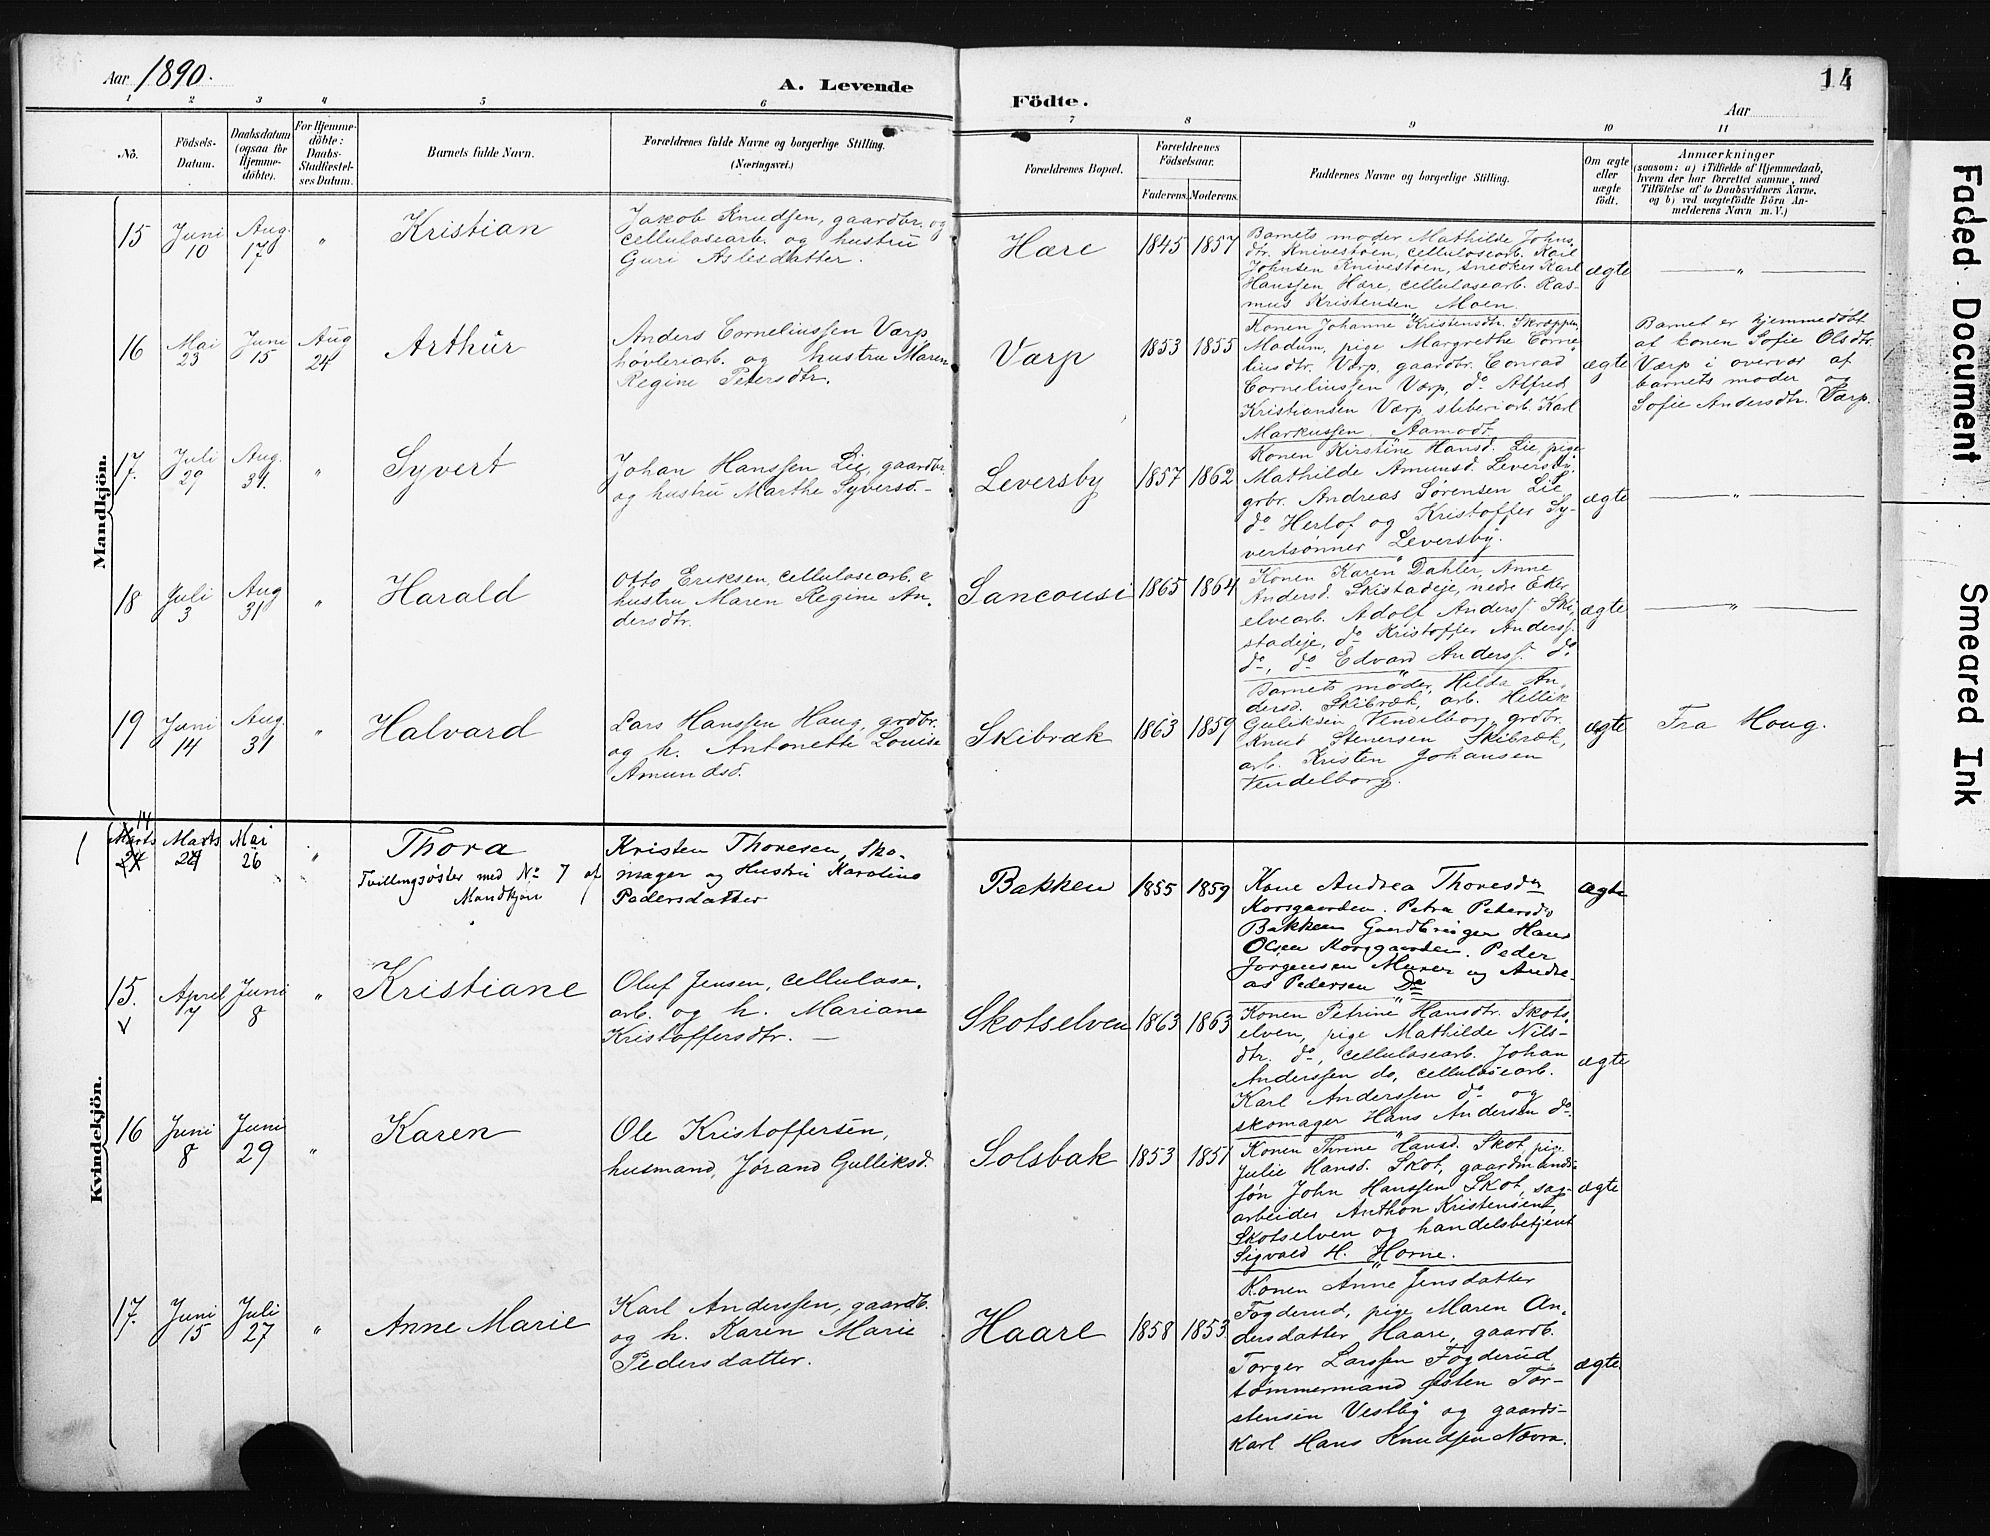 Aar 1890.
A. Levende
Födte.
Aar
14
1 2 3 4 5 6 7 8 9 10 11
No.
Födsels-
Datum.
Daabsdatum
(ogsaa for
Hjemme-
döbte).
For Hjemme-
döbte:
Daabs-
Stadfæstel-
ses Datum.
Barnets fulde Navn.
Forældrenes fulde Navne og borgerlige Stilling.
(Næringsvei.)
Forældrenes Bopæl.
Forældrenes
Födselsaar.
Faderens. Moderens.
Faddernes Navne og borgerlige Stilling.
Om ægte
eller
uægte
födt.
Anmærkninger
(saasom: a) i Tilfælde af Hjemmedaab,
hvem der har forrettet samme, med
Tilföielse af to Daabsvidners Navne,
og b) ved uægtefödte Börn An-
melderens Navn m. V.)
Mandkjön.
15 Juni 10 Aug. 17 " Kristian
Jakob Knudsen, gaardbr. og
cellulosearb. og hustru
Guri Aslesdatter.
Hære 1845 1857
Barnets moder Mathilde Johns.
dtr. Knivestøen, cellulosearb. Karl
Johnsen Knivestøen, snedker Karl
Hanssen Hære, cellulosearb. Ras-
mus Kristensen Moen.
ægte — " —
16 Mai 23 Juni 15 Aug 24 Arthur
Anders Corneliussen Værp,
høvleriarb. og hustru Maren
Regine Petersdtr.
Værp 1853 1855
Konen Johanne Kristensdtr. Skræppen,
Modum, pige Margrethe Corne-
liusdtr. Værp, gaardbr. Conrad
Corneliussen Værp, do Alfred
Kristiansen Værp, sliberiarb. Karl
Markussen Aamodt.
ægte
Barnet er hjemmedøbt
af konen Sofie Olsdtr.
Værp i overvær af
barnets moder og
Sofie Andersdtr. Værp.
17. Juli 29 Aug. 31. " Syvert
Johan Hanssen Lie, gaardbr.
og hustru Marthe Syversd. -
Leversby 1857 1862
Konen Kirstine Hansd. Lie, pige
Mathilde Amunsd. Leversby,
grbr. Andreas Sørensen Lie
do Herlof og Kristoffer Sy-
vertsønner Leversby.
ægte — " —
18 Juli 3 Aug 31 " Harald
Otto Eriksen, cellulosearb. &
hustru Maren Regine An,
dersdtr.
Sancousi 1865 1864
Konen Karen Dahler, Anne
Andersd. Skistadeje, nedre Eker,
elvearb. Adolf Anderss. Ski,
stadeje, do Kristoffer Anderss.
do, do Edvard Anderss. do
ægte — " —
19 Juni 14 Aug. 31 " Halvard
Lars Hanssen Haug, grdbr.
og h. Antonette Louise
Amundsd.
Skibræk 1863 1859
Barnets moder, Hilda An,
dersd. Skibræk, arb. Hellik
Guliksen Vendelborg, grdbr.
Knud Stenersen Skibræk,
arb. Kristen Johansen
Vendelborg.
ægte Fra Houg.
Kvindekjön.
1 14 Marts 24 Marts 24 Mai 26 " Thora
Tvillingsøster med No 7 af
Mandkjøn
Kristen Thoresen, Sko-
mager og Hustru Karoline
Pedersdatter
Bakken 1855 1859
Kone Andrea Thoresdtr
Korsgaarden. Petra Petersdtr
Bakken Gaardbruger Hans
Olsen Korsgaarden. Peder
Jørgensen Murer og Andre-
as Pedersen Do
ægte
15. April 7 Juni 8 " Kristiane
Oluf Jensen, cellulose,
arb. og h. Mariane
Kristoffersdtr. —
Skotselven 1863 1863
Konen Petrine Hansdtr. Skots,
elven, pige Mathilde Nils-
dtr. do, cellulosearb. Johan
Anderssen do, cellulosearb.
Karl Anderssen do og
skomager Hans Andersen do.
ægte
16 Juni 8 Juni 29 " Karen
Ole Kristoffersen,
husmand, Jørand Gulliksd.
Solsbak 1853 1851
Konen Thrine Hansd. Skot, pige
Julie Hansd. Skot, gaardmands-
søn John Hanssen Skot, sag-
arbeider Anthon Kristensen,
Skotselven og handelsbetjent
Sigvald H. Horne.
ægte
17. Juni 15 Juli 27 " Anne Marie
Karl Anderssen, gaardb.
og h. Karen Marie
Pedersdatter.
Haare 1858 1853
Konen Anne Jensdatter
Fogderud, pige Maren An,
dersdatter Haare, gaardb.
Torger Larssen Fogderud,
tømmermand Østen Tor-
stensen Vestby og gaards-
karl Hans Knudsen Nøvra.
ægte
Faded Document
Smeared Ink